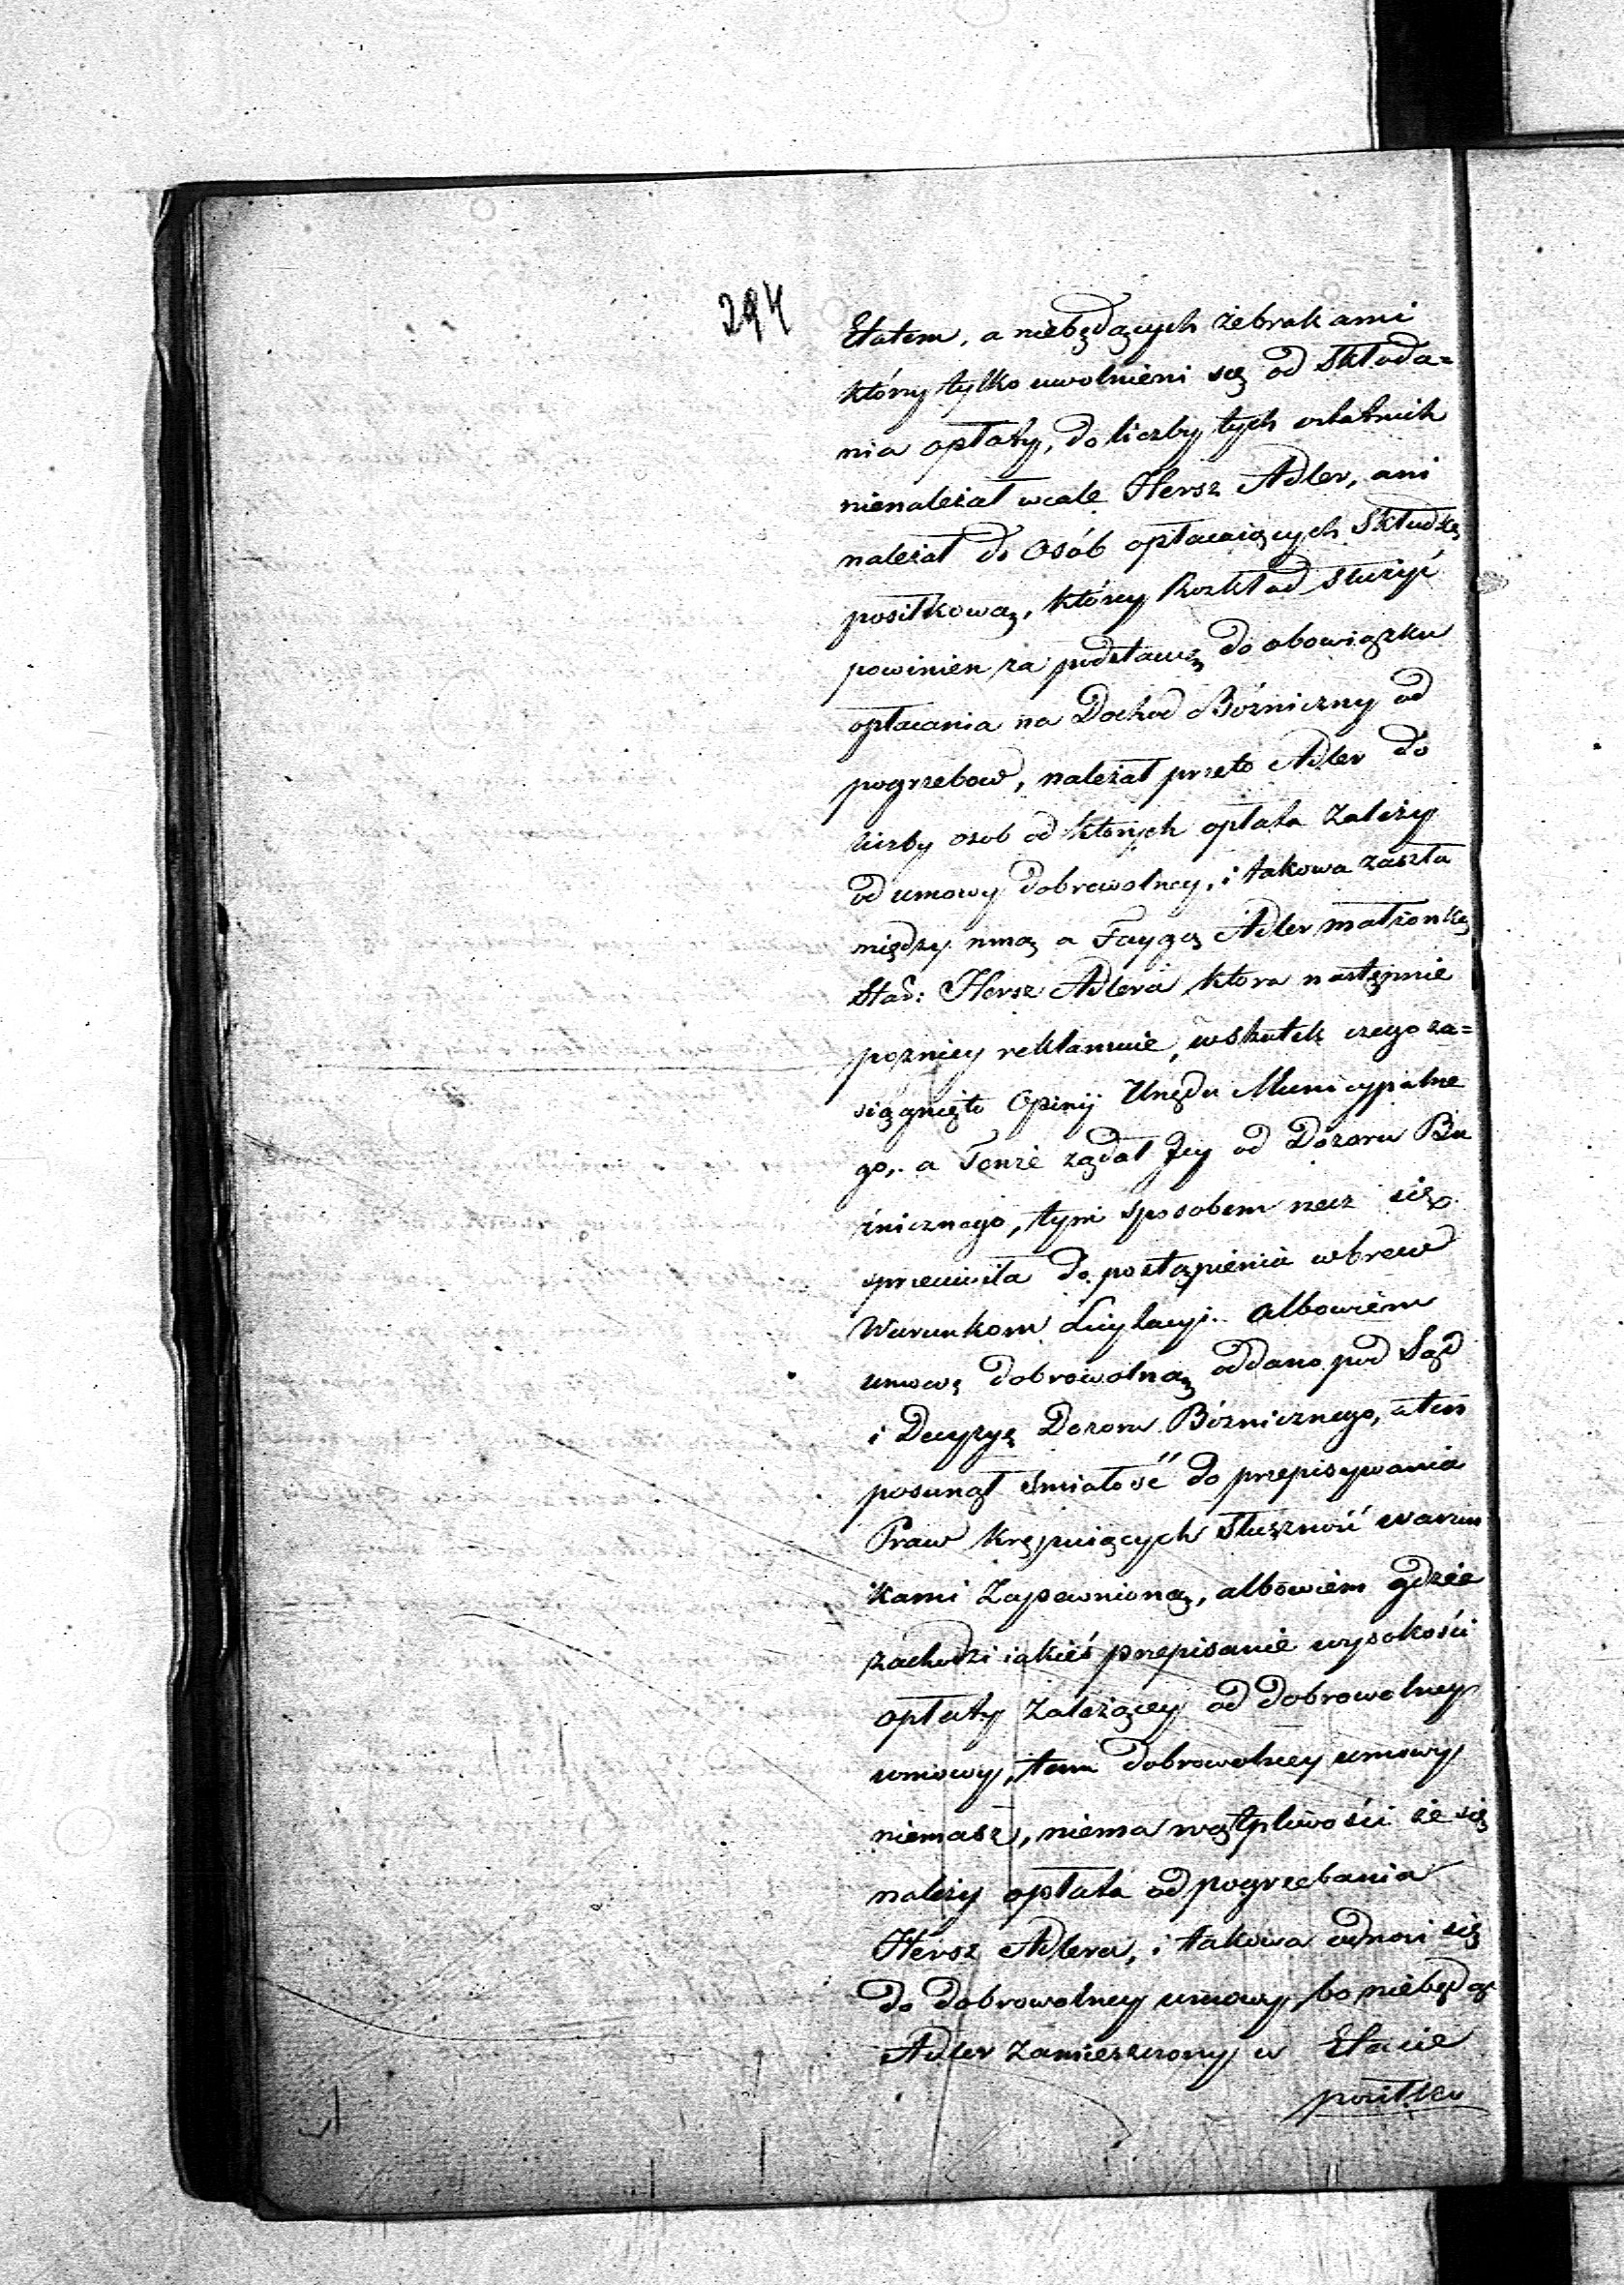 294
Etatem, a niebędących żebrakami
który tylko uwolnieni są od składa=
nia opłaty, do liczby tych ostatnich
nienależał wcale Hersz Adler, ani
należał do Osób opłacaiących Składkę
posiłkową, który Rozkład służyć
powinien za podstawę do obowiązku
opłacania na Dochod Bóżniczny od
pogrzebow, należał przeto Adler do
liczby osob od których opłata Zależy
od umowy dobrowolney, i takowa zaszła
między mną a Faygą Adler małżonką
Hersz Adlera która następnie
poźniey reklamuie, wskutek czego za=
siągnięto Opinij Urzędu Municypalne
go, a Tenże żądał Jey od Dozoru Bu
źnicznego, tym sposobem rzecz się
sprzeciwiła do postąpienia wbrew
Warunkom Licytacyi. albowiem
umowę dobrowolną oddano pod Sąd
i Decyzyę Dozoru Bóżnicznego, a ten
posunął śmiałość do przepisywania
Praw krępuiących słuszność warun
kami Zapewnioną, albowiem gdzie
zachodzi iakieś przepisanie wysokości
opłaty Zależącey od dobrowolney
umowy, tam dobrowolney umowy
niemasz, niema wątpliwości że się
należy opłata od pogrzebania
Hersz Adlera, i takowa odnosi się
do dobrowolney umowy, bo niebędąc
Adler Zamieszczony w Etacie
posiłko